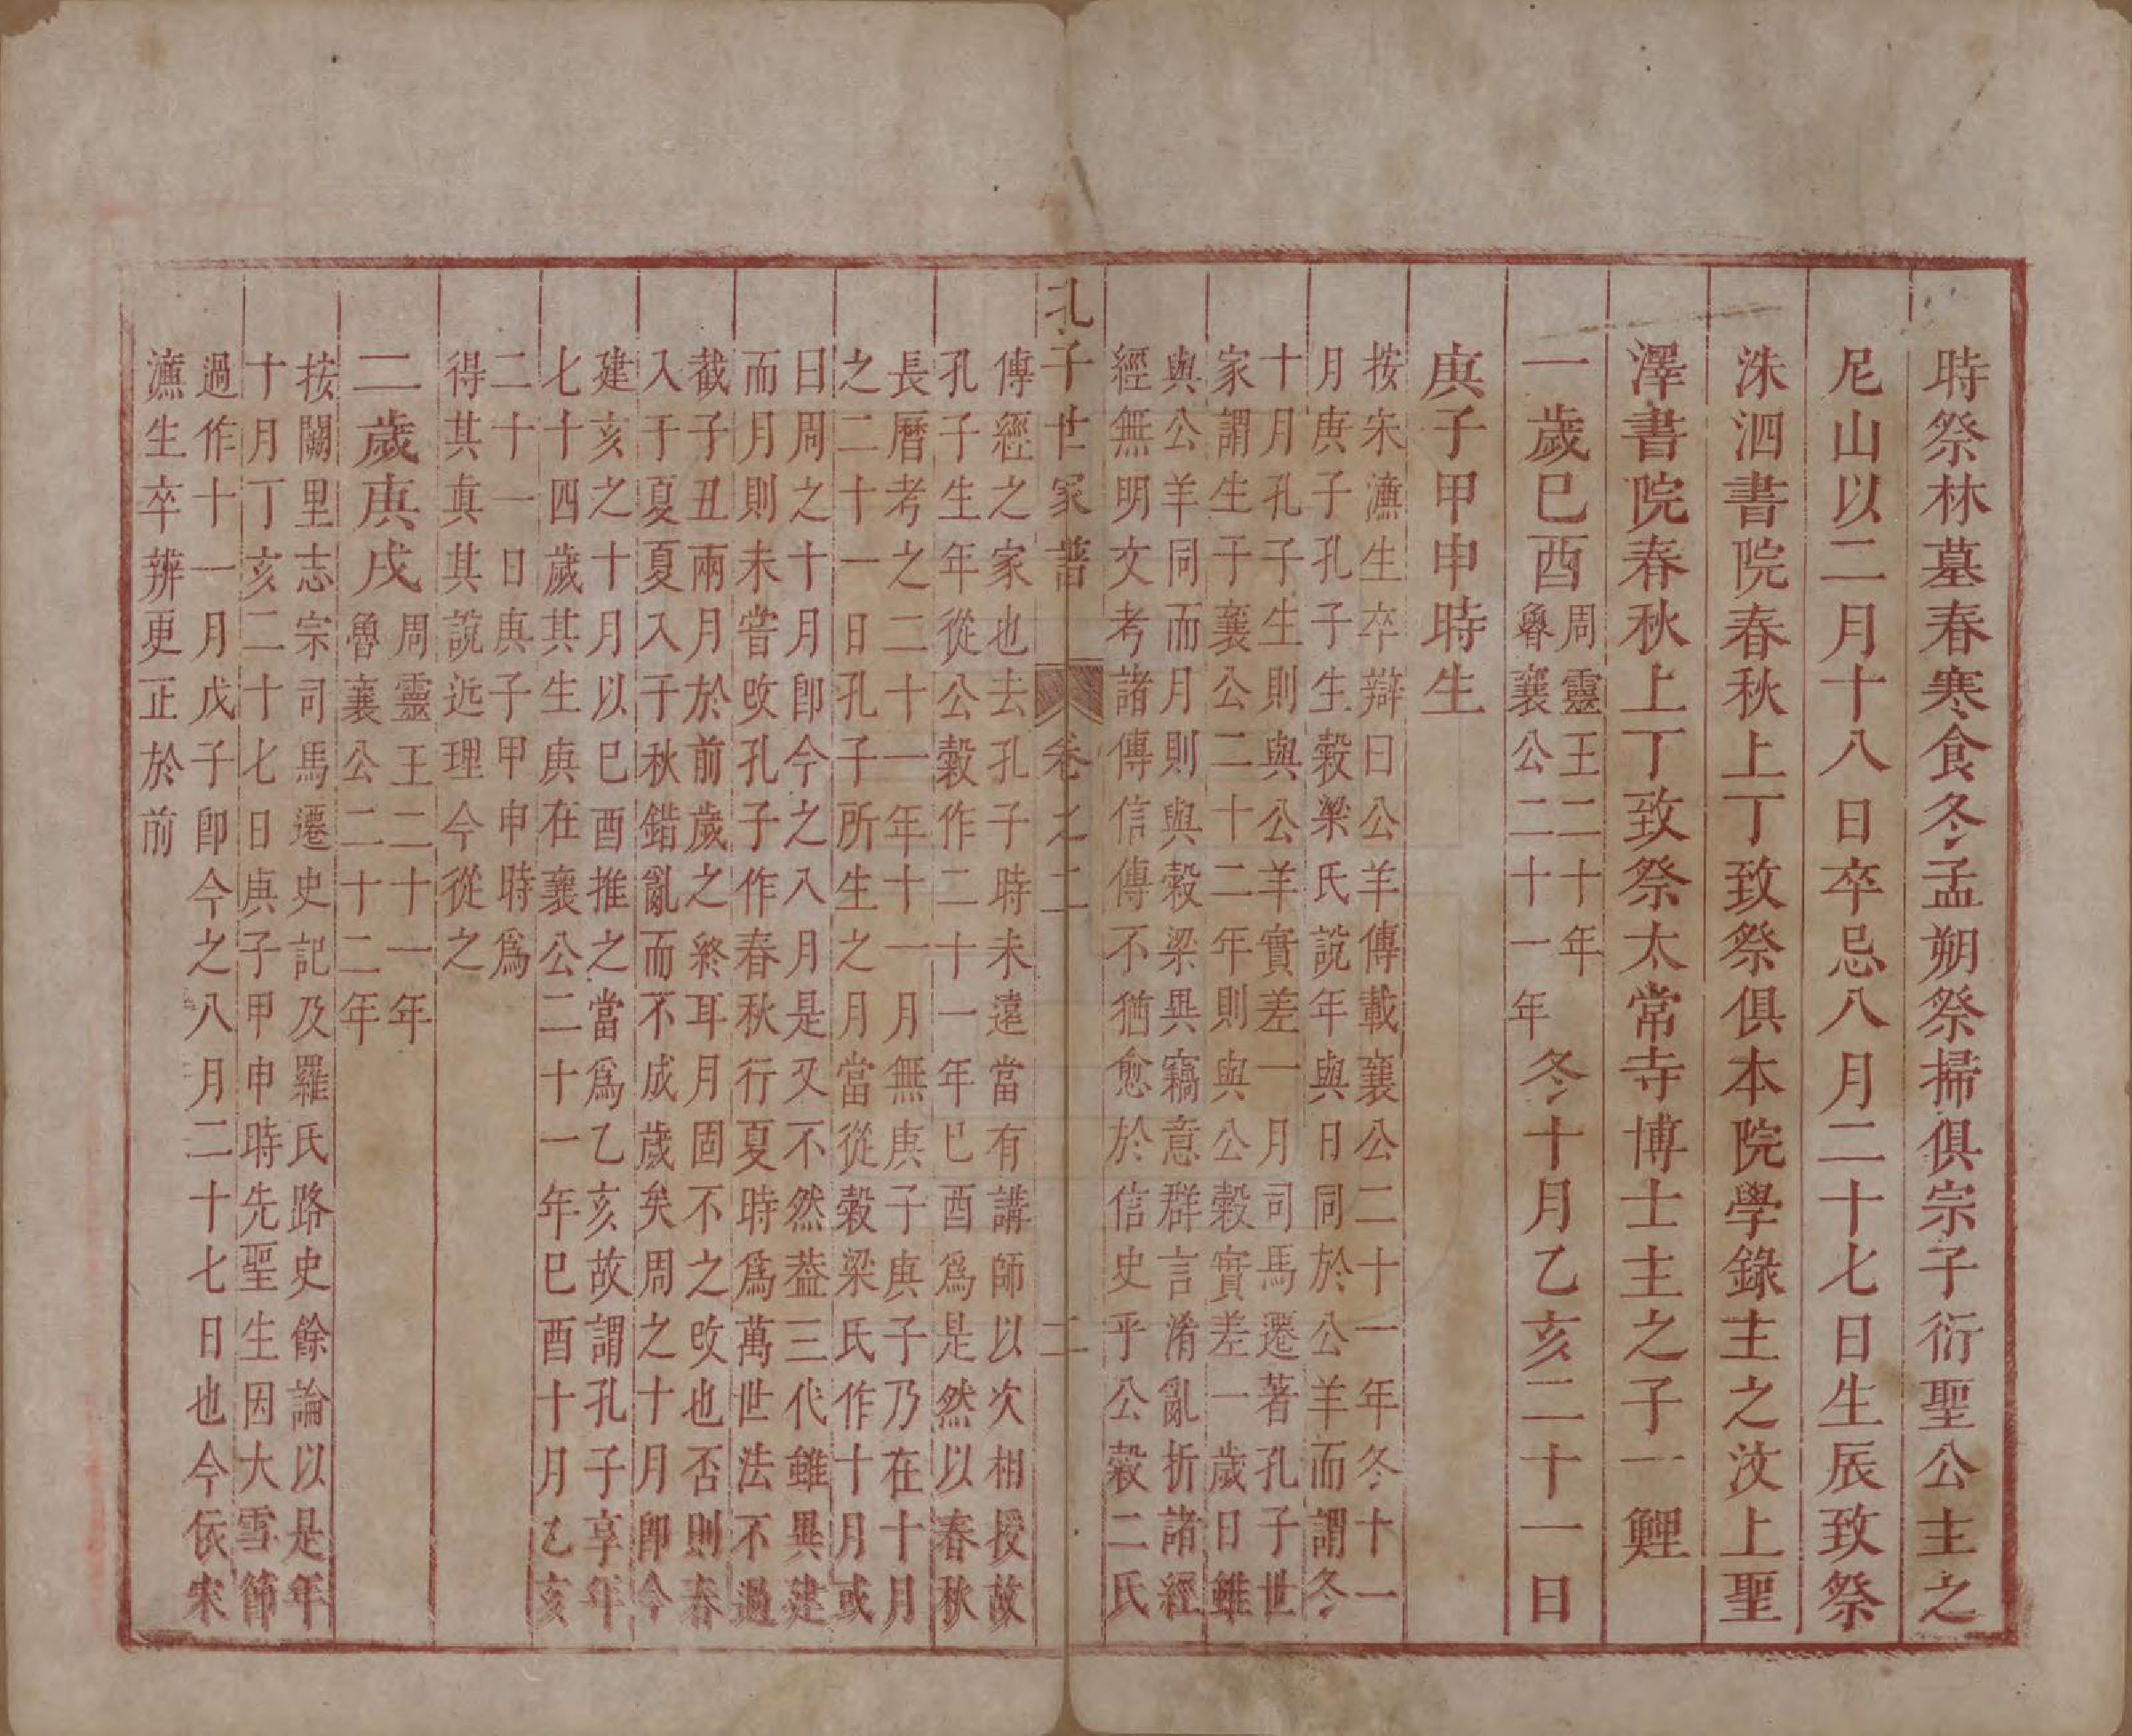 時祭林墓春寒食冬孟朔祭掃俱宗子衍聖公主之
尼山以二月十八日卒忌八月二十七日生辰致祭
洙泗書院春秋上丁致祭俱本院學錄主之汶上聖
澤書院春秋上丁致祭太常寺博士主之子一鯉
一歲巳酉周靈王二十年魯襄公二十一年冬十月乙亥二十一日
庚子甲申時生
按宋濂生卒辯曰公羊傳載襄公二十一年冬十一
月庚子孔子生穀梁氏說年與日同於公羊而謂冬
十月孔子生則與公羊實差一月司馬遷著孔子世
家謂生于襄公二十二年則與公穀實差一歲日雖
與公羊同而月則與穀梁異竊意群言淆亂折諸經
經無明文考諸傳信傳不猶愈於信史乎公穀二氏
孔子世家譜 卷之二 二
傳經之家也去孔子時未遠當有講師以次相授故
孔子生年從公穀作二十一年巳酉為是然以春秋
長曆考之二十一年十一月無庚子庚子乃在十月
之二十一日孔子所生之月當從穀梁氏作十月或
曰周之十月卽今之八月是又不然葢三代雖異建
而月則未嘗改孔子作春秋行夏時爲萬世法不過
截子丑兩月於前歲之終耳月固不之改也否則春
入于夏夏入于秋錯亂而不成歲矣周之十月卽今
建亥之十月以巳酉推之當爲乙亥故謂孔子享年
七十四歲其生庚在襄公二十一年巳酉十月乙亥
二十一日庚子甲申時爲
得其真其說近理今從之
二歲庚戌周靈王二十一年魯襄公二十二年
按闕里志宗司馬遷史記及羅氏路史餘論以是年
十月丁亥二十七日庚子甲申時先聖生因大雪節
過作十一月戊子卽今之八月二十七日也今依宋
濂生卒辨更正於前